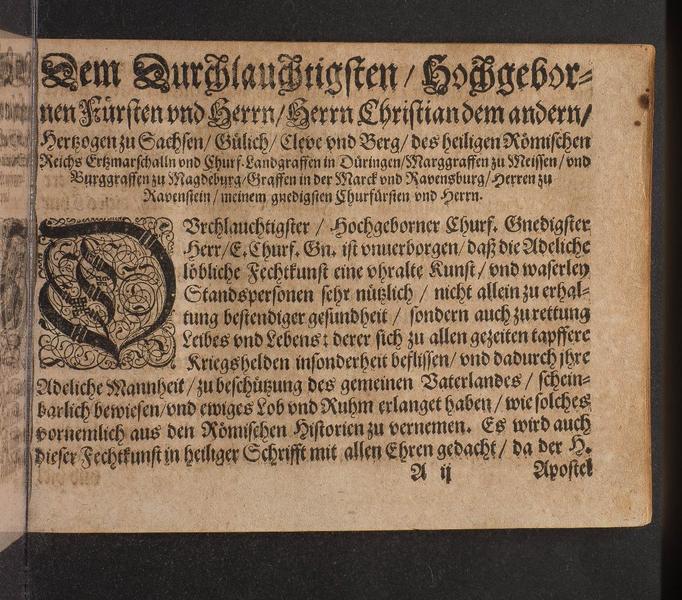 Dem Durchlauchtigsten / Hochgebor-
nen Fürsten vnd Herrn / Herrn Christian dem andern /
Hertzogen zu Sachsen / Gülich / Cleve vnd Berg / des heiligen Römischen
Reichs Ertzmarschalln vnd Churf. Landgraffen in Düringen / Marggraffen zu Meissen / vnd
Burggraffen zu Magdeburg / Graffen in der Marck vnd Ravensburg / Herren zu
Ravenstein / meinem gnedigsten Churfürsten vnd Herrn.
DVrchlauchtigster / Hochgeborner Churf. Gnedigster
Herr / E. Churf. Gn. ist vnuerborgen / daß die Adeliche
löbliche Fechtkunst eine vhralte Kunst / vnd waserley
Standspersonen sehr nützlich / nicht allein zu erhal-
tung bestendiger gesundheit / sondern auch zu rettung
Leibes vnd Lebens: derer sich zu allen gezeiten tapffere
Kriegshelden insonderheit beflissen / vnd dadurch jhre
Adeliche Mannheit / zu beschützung des gemeinen Vaterlandes / schein-
barlich bewiesen / vnd ewiges Lob vnd Ruhm erlanget haben / wie solches
vornemlich aus den Römischen Historien zu vernemen. Es wird auch
dieser Fechtkunst in heiliger Schrifft mit allen Ehren gedacht / da der H.
A ij Apostel